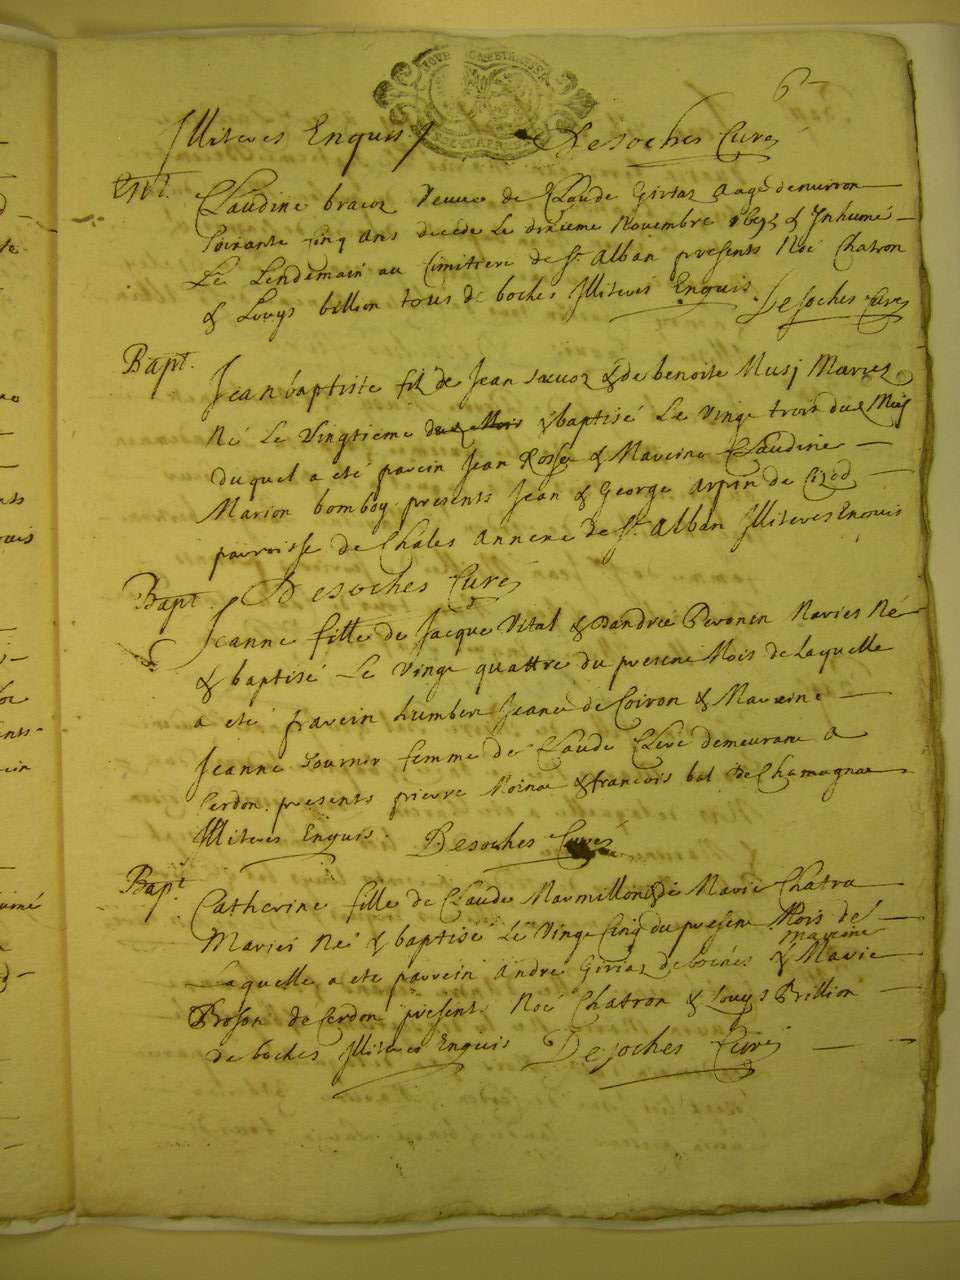 6
Illiteres Enquis / Desoches Curé
Claudine veuve de Claude Giriat aagé denviron
soixante cinq ans decede le dixieme Novembre & Inhumé
Le Lendemain au Cimitiere de St Alban presents Noé Chatron
& Louys billion tous de boches Illiteres Enquis Desoches Curé
Bapt.
Jean baptiste fil de Jean & de benoite Musy Mariez
Né Le Vingtieme & baptisé Le Vingt trois du Mois
duquel a eté parein Jean Rosse & Mareine Claudine
Marion bomboy presents Jean & George Arpin de
parroisse de Chales Annexe de St Alban Illiteres Enquis
Desoches Curé
Bapt.
Jeanne fille de Jacque Vital & Dandrée Peronin Mariés Né
& baptisé Le Vingt quattre du present Mois de Laquelle
a eté parein humbert de Coiron & Mareine
Jeanne femme de Claude demeurant a
Cerdon presents pierre & francois bal De Chamagnat
Illiteres Enquis Desoches Curé
Bapt
Catherine fille de Claude Marmillon & de Marie Chatra
Mariés Né & baptisé Le Vingt Cinq du present Mois de
Laquelle a eté parrein André Giriat de boches & mareine Marie
de Cerdon present Noé Chatron & Louys Brillion
de boches Illiteres Enquis Desoches Curé